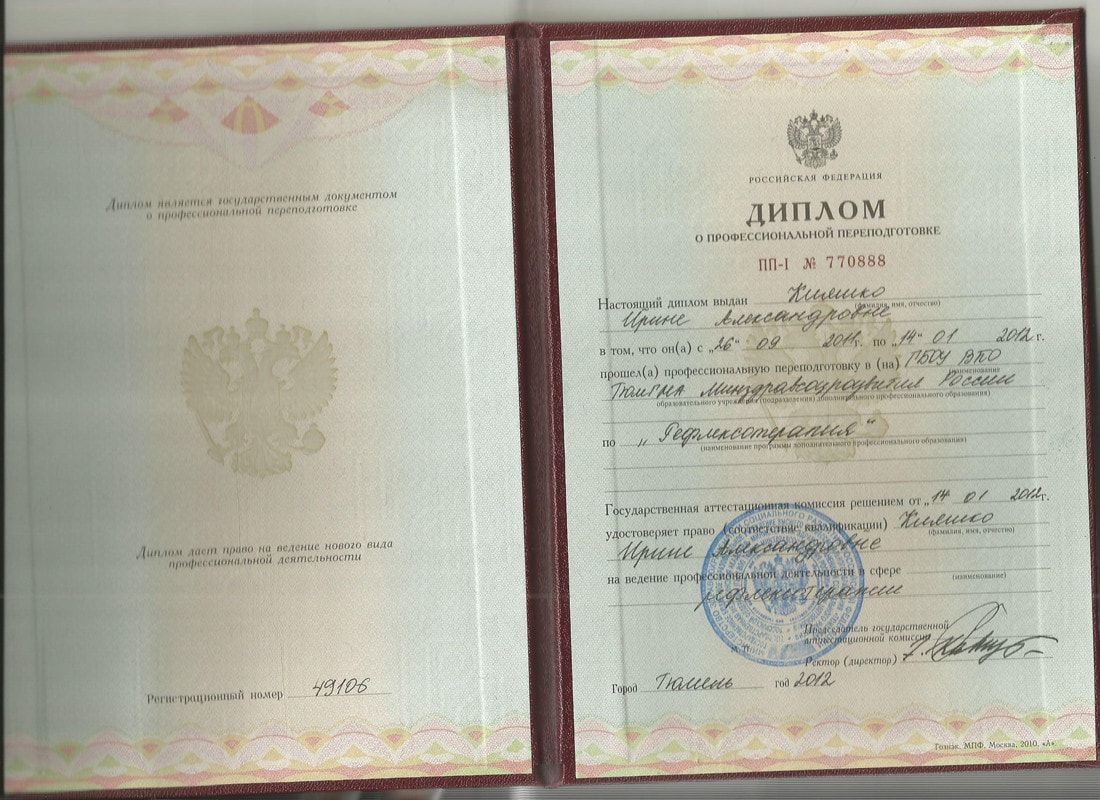 Диплом является государственным документом
о профессиональной переподготовке
Диплом дает право на ведение нового вида
профессиональной деятельности
Регистрационный номер 49106
РОССИЙСКАЯ ФЕДЕРАЦИЯ
ДИПЛОМ
О ПРОФЕССИОНАЛЬНОЙ ПЕРЕПОДГОТОВКЕ
ПП-I № 770888
Настоящий диплом выдан Кияшко
(фамилия, имя, отчество)
Ирине Александровне
в том, что он(а) с „26“ 09 2011г. по „14“ 01 2012г.
прошел(а) профессиональную переподготовку в (на) ГБОУ ВПО
(наименование
ТюмГМА Минздравсоцразвития России
образовательного учреждения (подразделения) дополнительного профессионального образования)
по „Рефлексотерапия“
(наименование программы дополнительного профессионального образования)
Государственная аттестационная комиссия решением от „14 01 2012г.
удостоверяет право (соответствие квалификации) Кияшко
(фамилия, имя, отчество)
Ирине Александровне
на ведение профессиональной деятельности в сфере
(наименование)
рефлексотерапии
Председатель государственной
аттестационной комиссии
Ректор (директор)
Город Тюмень год 2012
Гознак, МПФ, Москва, 2010, «А»